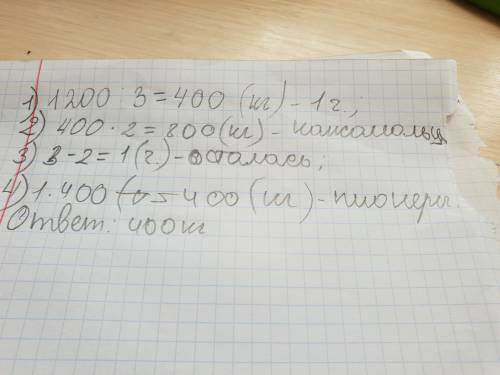 1) 1200 : 3 = 400 (кг) - 1 ч.;
2) 400 · 2 = 800 (кг) - комсомольц
3) 3 - 2 = 1 (ч.) - осталась;
4) 1 · 400 = 400 (кг) - пионеры.
Ответ: 400 кг